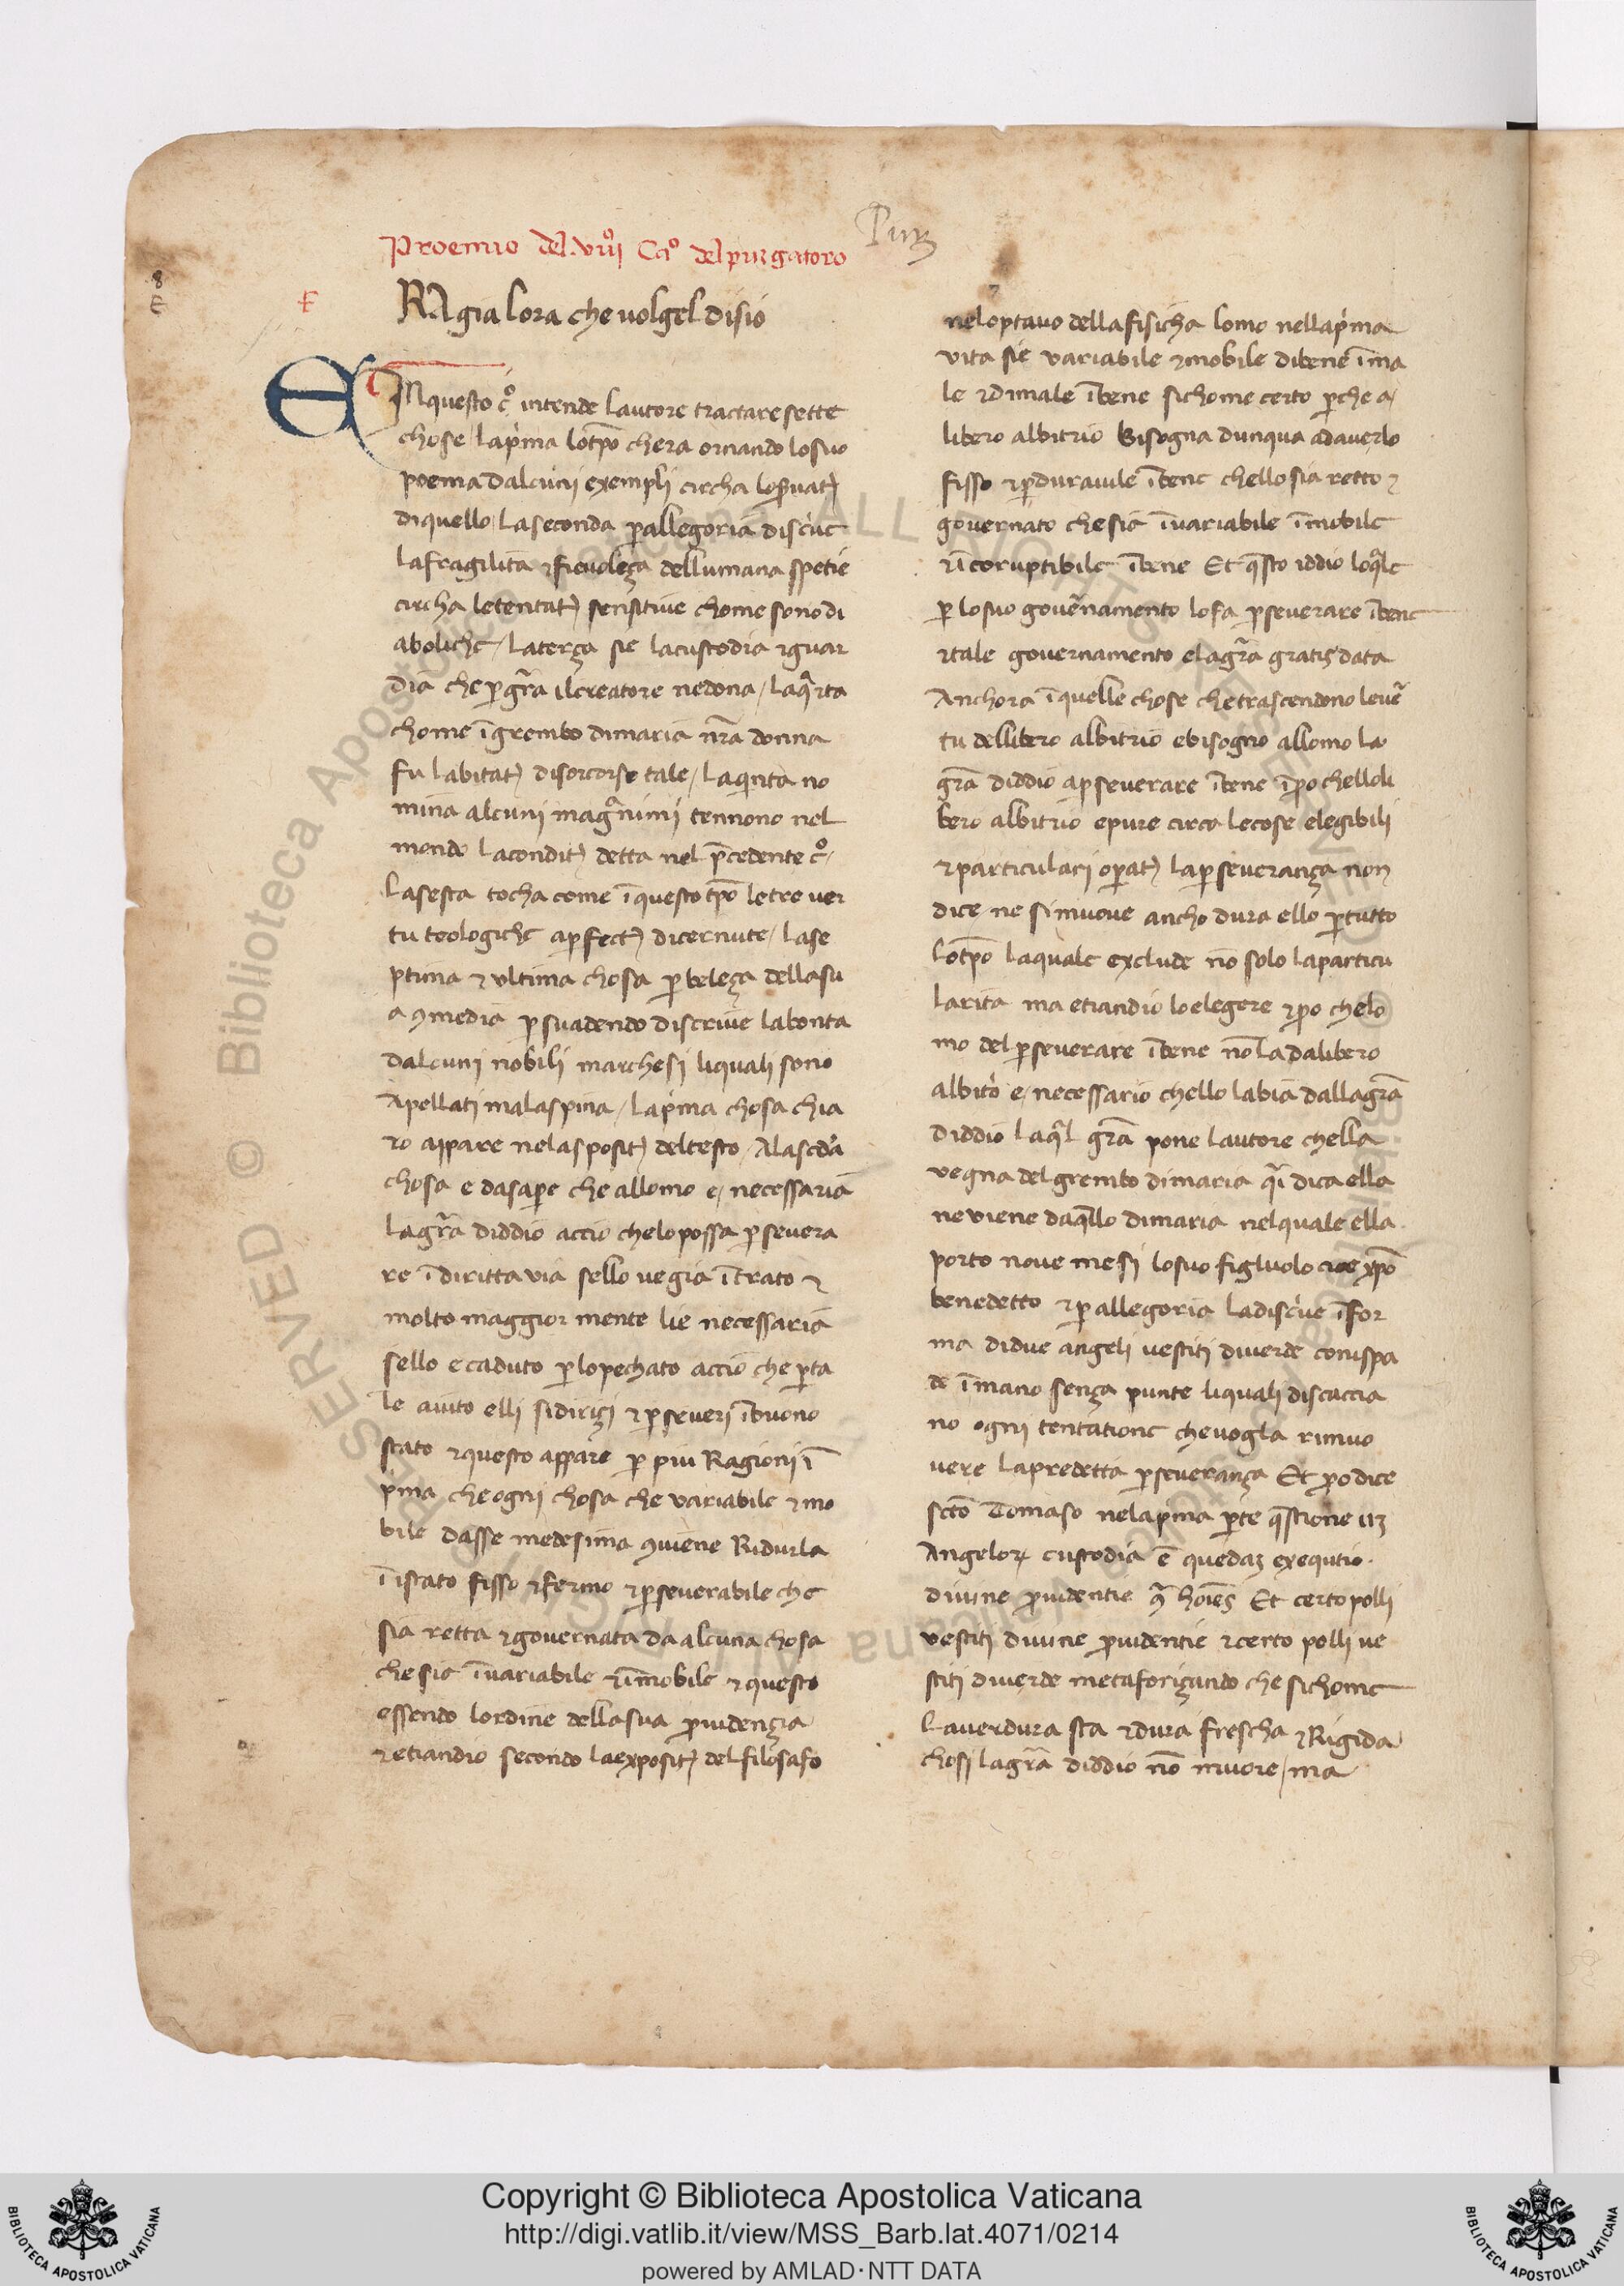 Purg
Proemio del viijº Caº del purgatoro
8
E
E
RA gia lora che uolgel disio
IN questo cº intende lautore tractare sette
chose / la pi̇ma lo tp̄o chera ornando lo suo
poema dalcuni exempli circha loꝑuatꝫ
di quello / la seconda ꝑ allegoria discriue
la fragilita ⁊ fieuoleça dellumana spetie
circha le tentatꝫ sensitiue chome sono di
aboliche / la terça sie la custodia ⁊ guar
dia che ꝑ grā il creatore ne dona / la qᵃrta
chome ī grembo di maria nr̄a donna
fu labitatꝫ di sorcorso tale / la qⁱnta no
mina alcuni magᵃnimi tennono nel
mondo la conditꝫ detta nel p̄cedente cº /
la sesta tocha come ī questo tp̄o le tre uer
tu teologiche aꝑfectꝫ dicernute / la se
ptima ⁊ ultima chosa ꝑ beleça della su
a 9media ꝑsuadendo discriue la bonta
dalcuni nobili marchesi li quali sono
Apellati malaspina / la pi̇ma chosa chia
ro appare nela spositꝫ del testo / Ala scd̄a
chosa e da saꝑe che allomo e / necessaria
la grā diddio accio che lo possa ꝑseuera
re ī diritta uia sello ue gia ītrato ⁊
molto maggior mente lie necessaria
sello e caduto ꝑ lo pechato accio che ꝑ ta
le aiuto elli si diriçi ⁊ ꝑseueri ī buono
stato ⁊ questo appare ꝑ piu Ragioni ī
pi̇ma che ogni chosa che uariabile ⁊ mo
bile dasse medesima 9uiene Ridurla
ī istato fisso ⁊ fermo ⁊ ꝑseuerabile che
sia retta ⁊ gouernata da alcuna chosa
che sia īuariabile ⁊ īmobile ⁊ questo
essendo lordine della sua ꝓuidençia
⁊ etiandio secondo la expositꝫ del filosafo
nel optauo della fisicha lomo nella pi̇ma
vita sie variabile ⁊ mobile di bene ī ma
le ⁊ di male ī bene sichome certo ꝑche a /
libero albitrio Bisogna dunqua ad auerlo
fisso ⁊ ꝑdurauile ī bene chello sia retto ⁊
gouernato che sia īuariabile īmobile
⁊ īcoruptibile ī bene Et qᵉsto iddio lo qᵃle
ꝑ lo suo gouernamento lo fa ꝑseuerare ī bene
⁊ tale gouernamento e la grā gratis data
Anchora ī quelle chose che trascendono le uer
tu del libero albitrio e bisogno allomo la
grā diddio a ꝑseuerare ī bene īꝑo chello li
bero albitrio e pure circa le cose elegibili
⁊ particulari oꝑatꝫ la ꝑseuerança non
dice / ne si muoue ancho dura ello ꝑ tutto
lo tp̄o la quale exclude nō solo la particu
larita ma etiandio lo elegere ⁊ ꝑo che lo
mo del ꝑseuerare ī bene nō la da libero
albitr̄o e / necessario chello labia dalla grā
diddio la qᵃl grā pone lautore chella
vegna del grembo di maria qᵃi dica ella
ne viene da qᵉllo di maria nel quale ella
porto noue mesi lo suo figluolo cioe xp̄o
benedetto ⁊ ꝑ allegoria la discriue ī for
ma di due angeli uestiti di uerde con ispa
de ī mano sença punte li quali discaccia
no ogni tentatione che uogla rimuo
uere la predetta ꝑseuerança Et ꝑo dice
scō Tomaso nela pi̇ma ꝑte qᵉstione 113
Angelorꝫ custodia ē quedaꝫ exequtio
diuine ꝓuidentie qᵃ hoīes Et certo polli
vestiti diuine ꝓuidentie ⁊ certo polli ue
stiti di uerde metaforiçando che sichome
la uerdura sta ⁊ dura frescha ⁊ Rigida
chosi la grā diddio nō muore / ma
© Biblioteca Apostolica Vaticana ALL RIGHTS RESERVED
Copyright © Biblioteca Apostolica Vaticana
http://digi.vatlib.it/view/MSS_Barb.lat.4071/0214
powered by AMLAD·NTT DATA
BIBLIOTECA APOSTOLICA VATICANA
BIBLIOTECA APOSTOLICA VATICANA